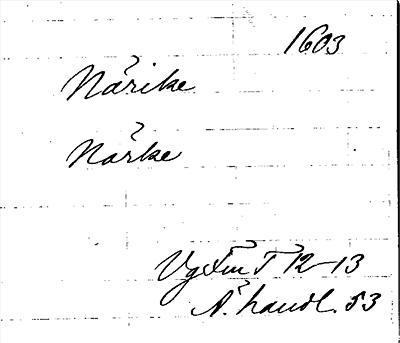 1603
Närike
Närke
VgFmT 12-13
A. handl. 53